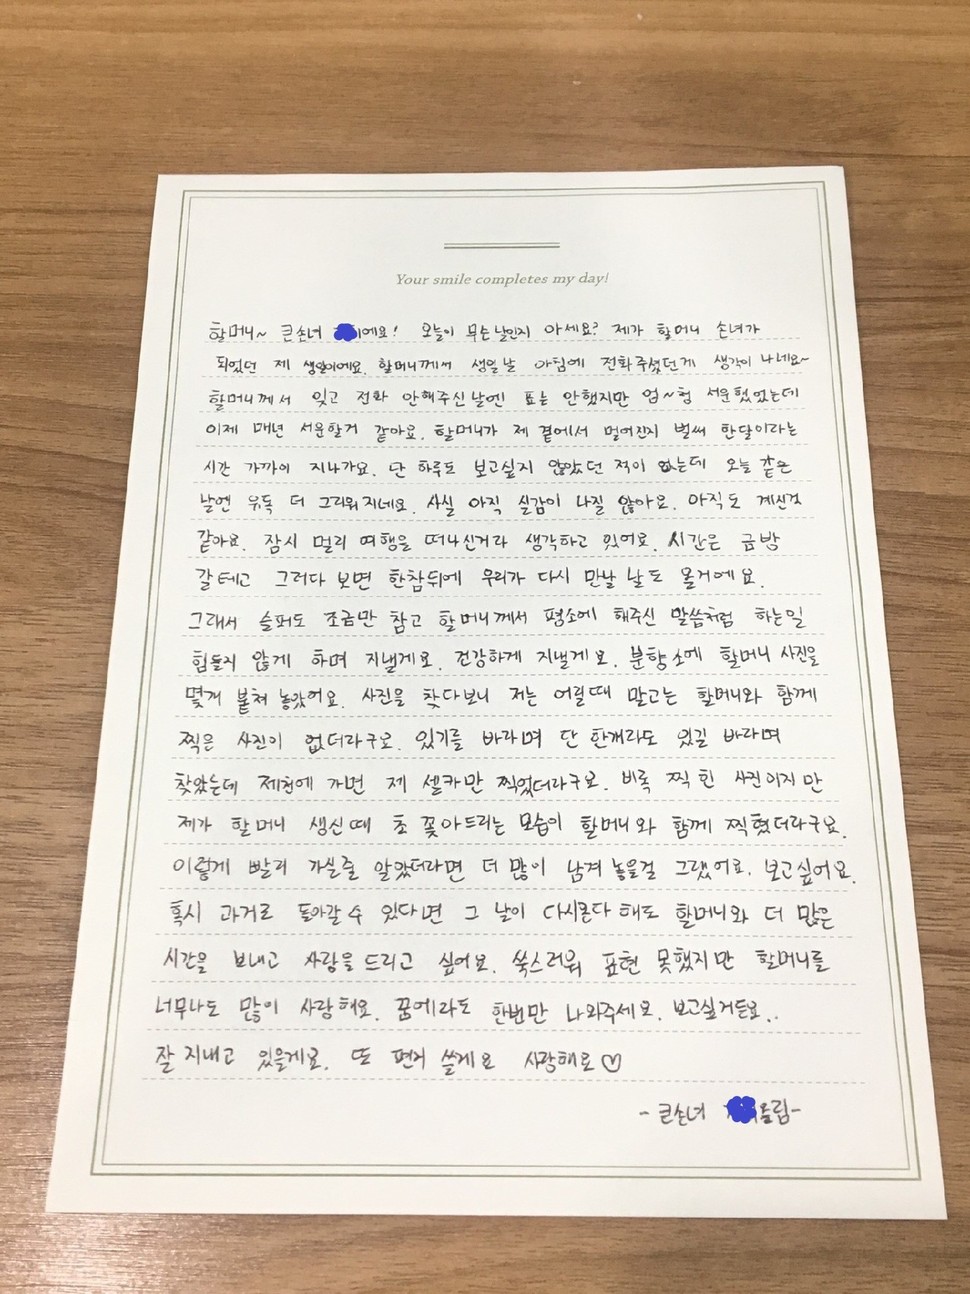 Your smile completes my day!
할머니~ 큰손녀 이에요! 오늘이 무슨날인지 아세요? 제가 할머니 손녀가
되었던 제 생일이에요. 할머니께서 생일날 아침에 전화주셨던게 생각이 나네요~
할머니께서 잊고 전화 안해주신날엔 표는 안했지만 엄~청 서운했었는데
이제 매년 서운할거 같아요. 할머니가 제 곁에서 멀어진지 벌써 한달이라는
시간 가까이 지나가요. 단 하루도 보고싶지 않았던 적이 없는데 오늘 같은
날엔 유독 더 그리워지네요. 사실 아직 실감이 나질 않아요. 아직도 계신것
같아요. 잠시 멀리 여행을 떠나신거라 생각하고 있어요. 시간은 금방
갈테고 그러다 보면 한참뒤에 우리가 다시 만날 날도 올거에요.
그래서 슬퍼도 조금만 참고 할머니께서 평소에 해주신 말씀처럼 하는일
힘들지 않게 하며 지낼게요. 건강하게 지낼게요. 분향소에 할머니 사진을
몇개 붙쳐 놓았어요. 사진을 찾다보니 저는 어릴때 말고는 할머니와 함께
찍은 사진이 없더라구요. 있기를 바라며 단 한개라도 있길 바라며
찾았는데 제천에 가면 제 셀카만 찍었더라구요. 비록 찍힌 사진이지만
제가 할머니 생신때 초 꽂아드리는 모습이 할머니와 함께 찍혔더라구요.
이렇게 빨리 가실줄 알았더라면 더 많이 남겨 놓을걸 그랬어요. 보고싶어요.
혹시 과거로 돌아갈 수 있다면 그 날이 다시온다 해도 할머니와 더 많은
시간을 보내고 사랑을 드리고 싶어요. 쑥스러워 표현 못했지만 할머니를
너무나도 많이 사랑해요. 꿈에라도 한번만 나와주세요. 보고싶거든요..
잘 지내고 있을게요. 또 편지 쓸게요 사랑해요♡
- 큰손녀 올림-